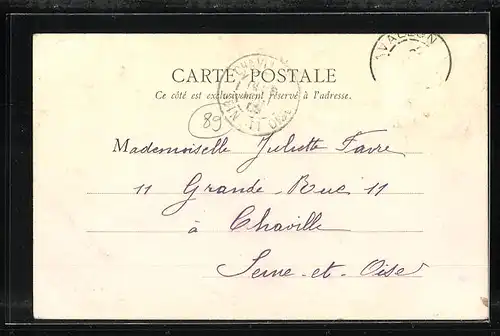 AVALLON
CHAVILLE
CARTE POSTALE
Ce côté est exclusivement réservé à l'adresse.
89
Mademoiselle Juliette Favre
11 Grande-Rue 11
à Chaville
Seine-et-Oise